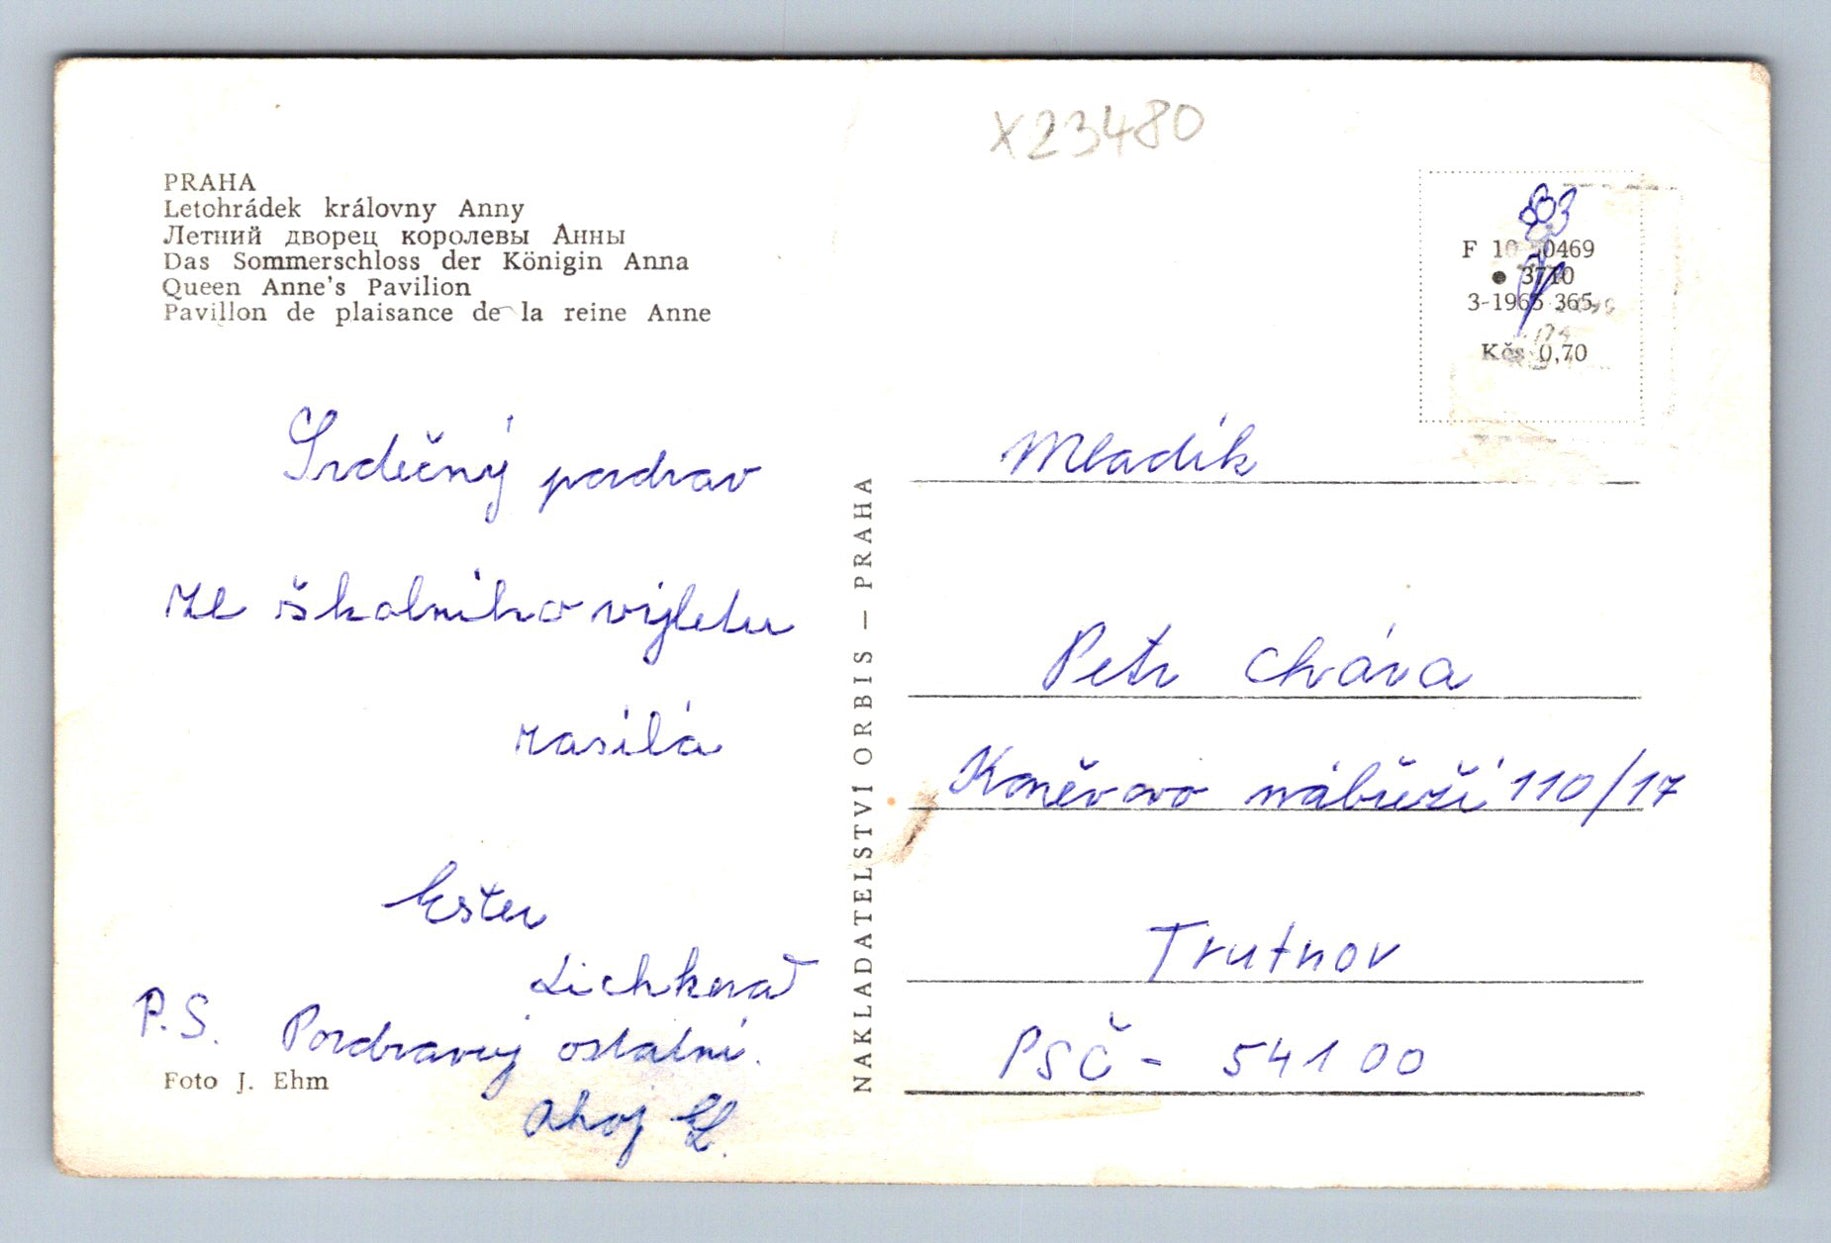 X23480
PRAHA
Letohrádek královny Anny
Летний дворец королевы Анны
Das Sommerschloss der Königin Anna
Queen Anne's Pavilion
Pavillon de plaisance de la reine Anne
F 10 0469
● 3710
3-1965 365
Kčs 0,70
Srdečný pozdrav
ze školního výletu
zasílá
Ester
Lichková
P.S. Pozdravuj ostatní.
Ahoj EL.
Foto J. Ehm
NAKLADATELSTVÍ ORBIS — PRAHA
Mladík
Petr Chvára
Koněvovo nábřeží 110/17
Trutnov
PSČ - 541 00